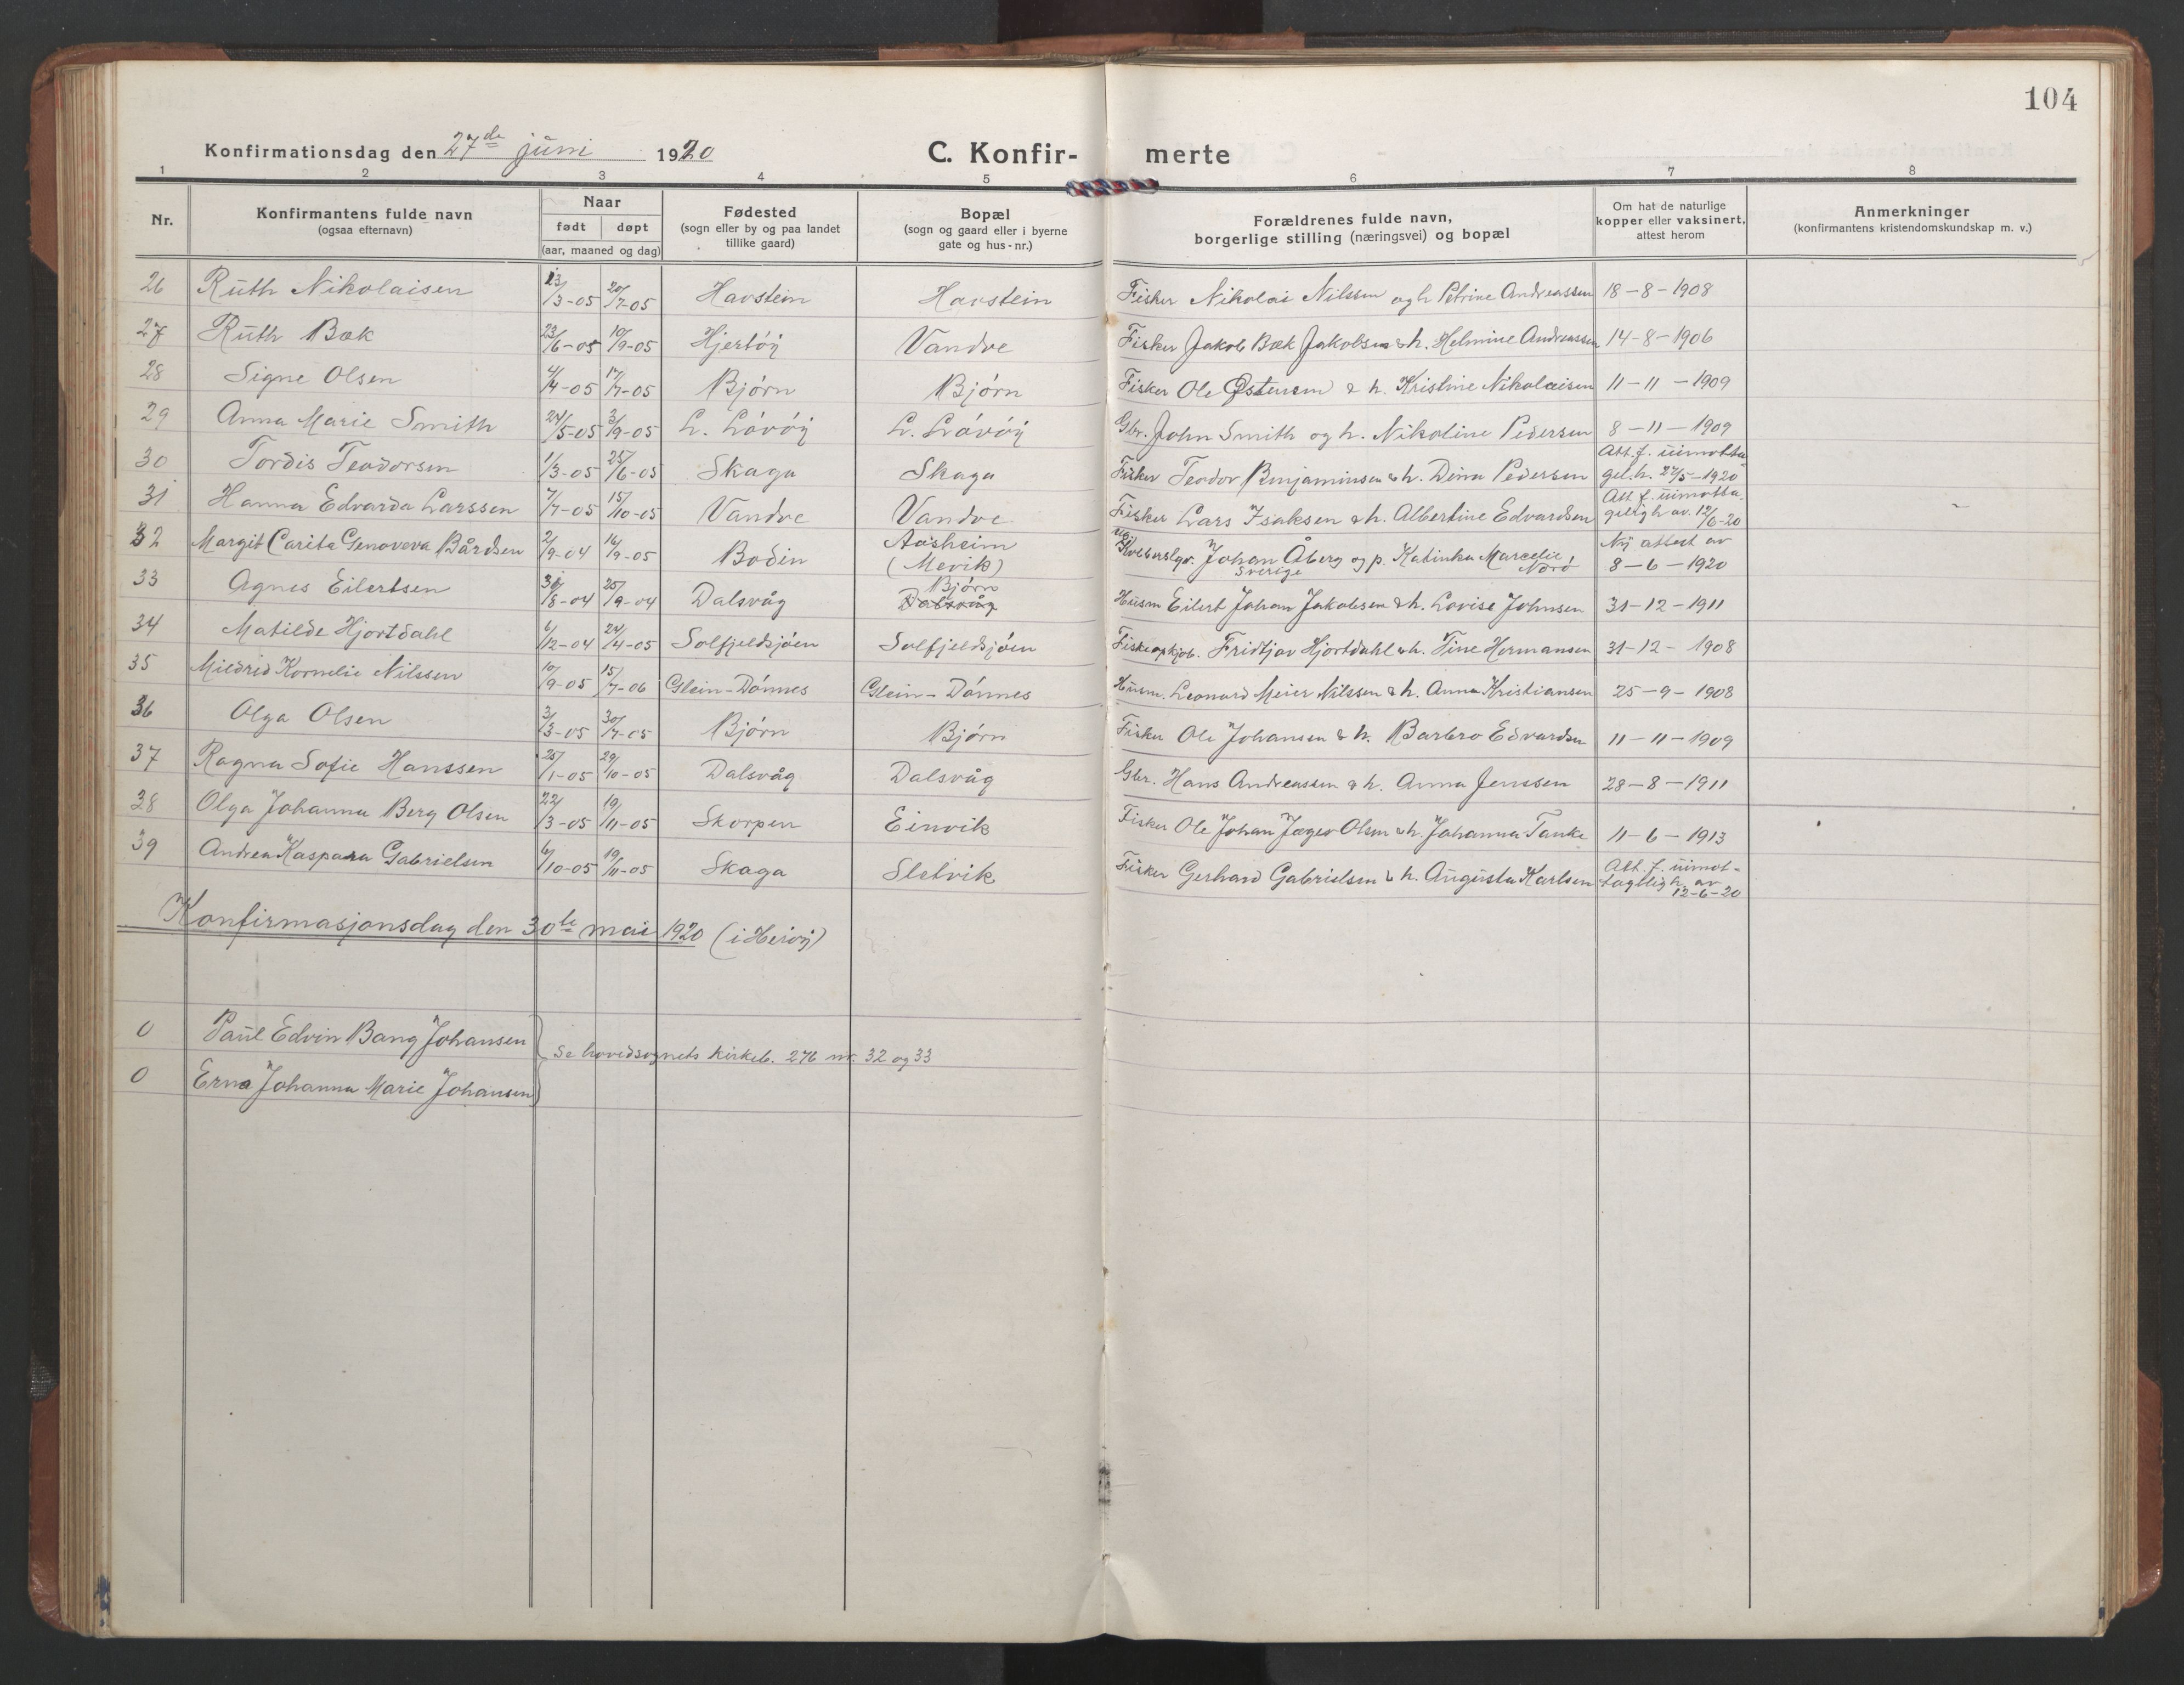 104
Konfirmationsdag den 27de juni 1920 C. Konfir- merte
1 2 3 4 5 6 7 8
Nr. Konfirmantens fulde navn (ogsaa efternavn) Naar født døpt (aar, maaned og dag) Fødested (sogn eller by og paa landet tillike gaard) Bopæl (sogn og gaard eller i byerne gate og hus-nr.) Forældrenes fulde navn, borgerlige stilling (næringsvei) og bopæl Om hat de naturlige kopper eller vaksinert, attest herom Anmerkninger (konfirmantens kristendomskundskap m. v.)
26 Ruth Nikolaisen 13/3-05 20/7-05 Havstein Havstein Fisker Nikolai Nilssen og h. Petrine Andreassen 18-8-1908
27 Ruth Bæk 23/6-05 10/9-05 Hjertøy Vandve Fisker Jakob Bæk Jakobsen & h. Helmine Andreassen 14-8-1906
28 Signe Olsen 4/4-05 /7-05 Bjørn Bjørn Fisker Ole Østensen & h. Kristine Nikolaisen 11-11-1909
29 Anna Marie Smith 24/5-05 3/9-05 L. Løvøy L. Løvøy Gbr. John Smith og h. Nikoline Pedersen 8-11-1909
30 Tordis Teodorsen 1/3-05 25/6-05 Skaga Skaga Fisker Teodor Benjaminsen & h. Dina Pedersen Att. f. uimotta-
gel. h. 27/5-1920
31 Hanna Edvarda Larssen 7/7-05 15/10-05 Vandve Vandve Fisker Lars Isaksen & h. Albertine Edvardsen Att. f. uimotta-
geligh. av. 12/6-20
32 Margit Carita Genoveva Bårdsen 2/9-04 16/9-05 Bodin Aasheim (Mevik) Johan Åberg Sverige og p. Katinka Marcelie, Nord Ny attest av
8-6-1920
33 Agnes Eilertsen 31/8-04 25/9-04 Dalsvåg Bjørn Dalsvåg Husm Eilert Johan Jakobsen & h. Lovise Johnsen 31-12-1911
34 Matilde Hjortdahl 6/12-04 24/4-05 Solfjeldsjøen Solfjeldsjøen Fiskeopkjøb. Fridtjov Hjortdahl & h. Tine Hermansen 31-12-1908
35 Mildrid Kornelie Nilssen 10/9-05 15/7-06 Glein-Dønnes Glein-Dønnes Husm. Leonard Meier Nilssen & h. Anna Kristiansen 25-9-1908
36 Olga Olsen 3/3-05 30/7-05 Bjørn Bjørn Fisker Ole Johansen & h. Barbro Edvardsen 11-11-1909
37 Ragna Sofie Hanssen 25/1-05 29/10-05 Dalsvåg Dalsvåg Gbr. Hans Andreassen & h. Anna Jenssen 28-8-1911
38 Olga Johanna Berg Olsen 22/3-05 19/11-05 Skorpen Einvik Fisker Ole Johan Jæger Olsen & h. Johanna Tanke 11-6-1913
39 Andrea Kaspara Gabrielsen 6/10-05 19/11-05 Skaga Sletvik Fisker Gerhard Gabrielsen & h. Augusta Karlsen Att. f. uimot-
tagligh. av
12-6-20
Konfirmasjonsdag den 30te mai 1920 (i Herøy)
0 Paul Edvin Bang Johansen
Se hovedsognets kirkeb. 276 nr. 32 og 33
0 Erna Johanna Marie Johansen